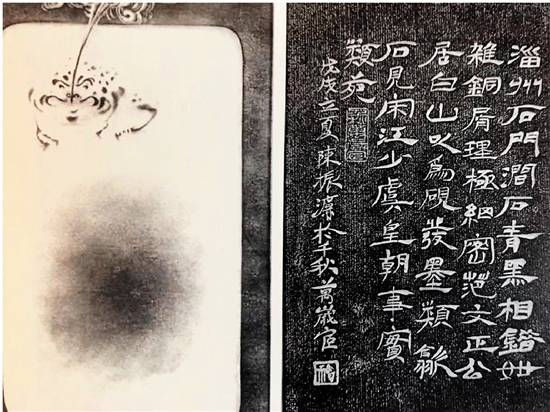 淄州石門澗石青黑相錯如
雜銅屑理極細密范文正公
居白山以爲硯發墨類歙
石見宋江少虞皇朝事實
類苑
戊戌立夏陳振濂於千秋萬歲宧